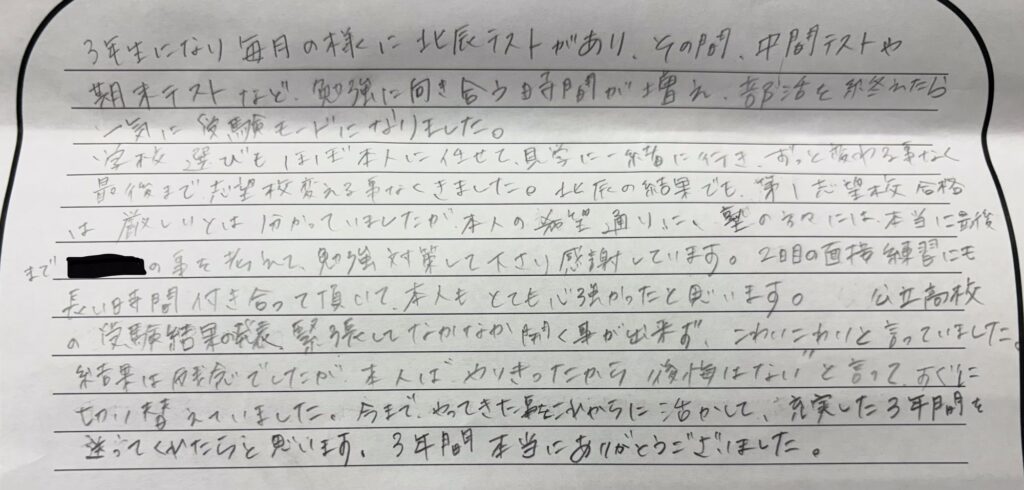 3年生になり毎月の様に北辰テストがあり、その間、中間テストや
期末テストなど、勉強に向き合う時間が増え、部活を終えたら
一気に受験モードになりました。
学校選びもほぼ本人に任せて、見学に一緒に行き、ずっと変わる事なく
最後まで志望校変える事なくきました。北辰の結果でも、第1志望校合格
は厳しいとは分かっていましたが本人の希望通りに、塾の方々には、本当に最後
まで の事を考えて、勉強対策して下さり感謝しています。2日目の面接練習にも
長い時間付き合って頂いて、本人もとても心強かったと思います。 公立高校
の受験結果発表、緊張してなかなか開く事が出来ず、こわいこわいと言っていました。
結果は残念でしたが、本人は"やりきったから後悔はない"と言って、すぐに
切り替えていました。今までやってきた事をこれからに活かして、充実した3年間を
送ってくれたらと思います。3年間本当にありがとうございました。